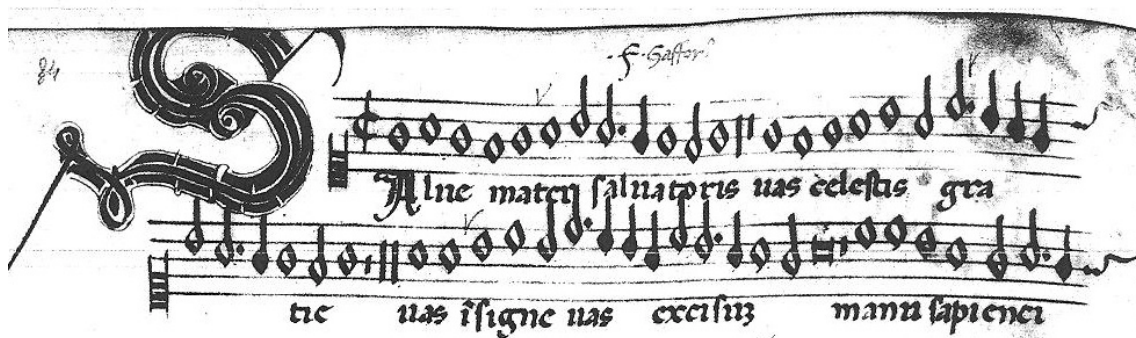 84
.f. Gaffor⁹
Alve mater salvatoris uas celestis gra
tie uas īsigne uas excisuʒ manu sapienci